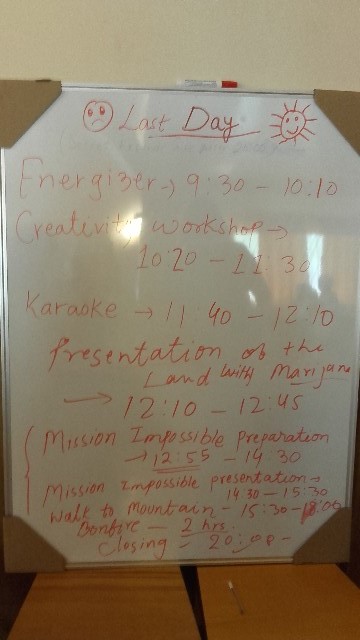 Last Day
Energizer → 9:30 - 10:10
Creativity workshop →
10:20 - 11:30
Karaoke → 11:40 - 12:10
Presentation of the
Land with Marijana
→ 12:10 - 12:45
Mission Impossible preparation
→ 12:55 - 14 30
Mission impossible presentation →
14:30 - 15:30
Walk to mountain - 15:30 - 18:00
Bonfire - 2 hrs.
Closing - 20:00 -